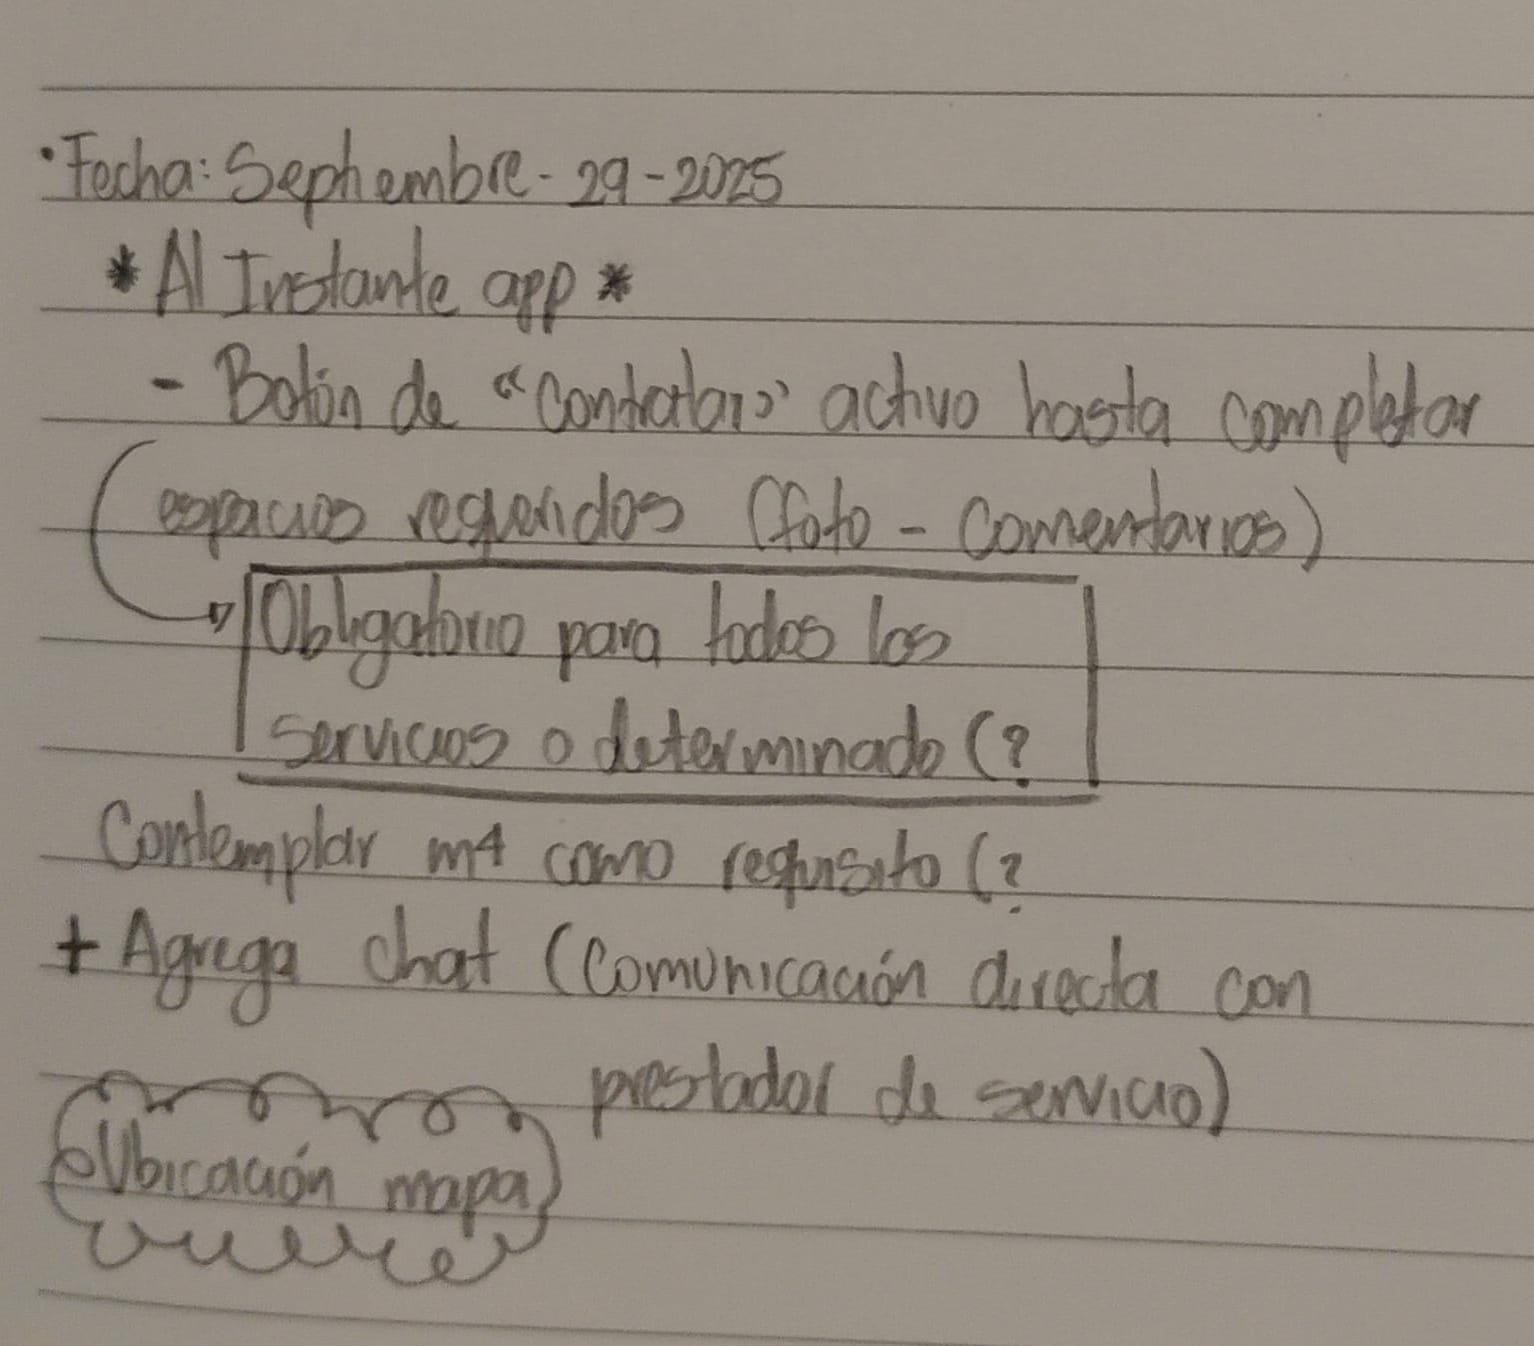 ·Fecha: Septiembre - 29 - 2025
* Al Instante app *
- Botón de "Contratar" activo hasta completar
espacios requeridos (foto - Comentarios)
Obligatorio para todos los
servicios o determinado (?
Contemplar m4 como requisito (?
+ Agrega chat (Comunicación directa con
prestador de servicio)
Ubicación mapa